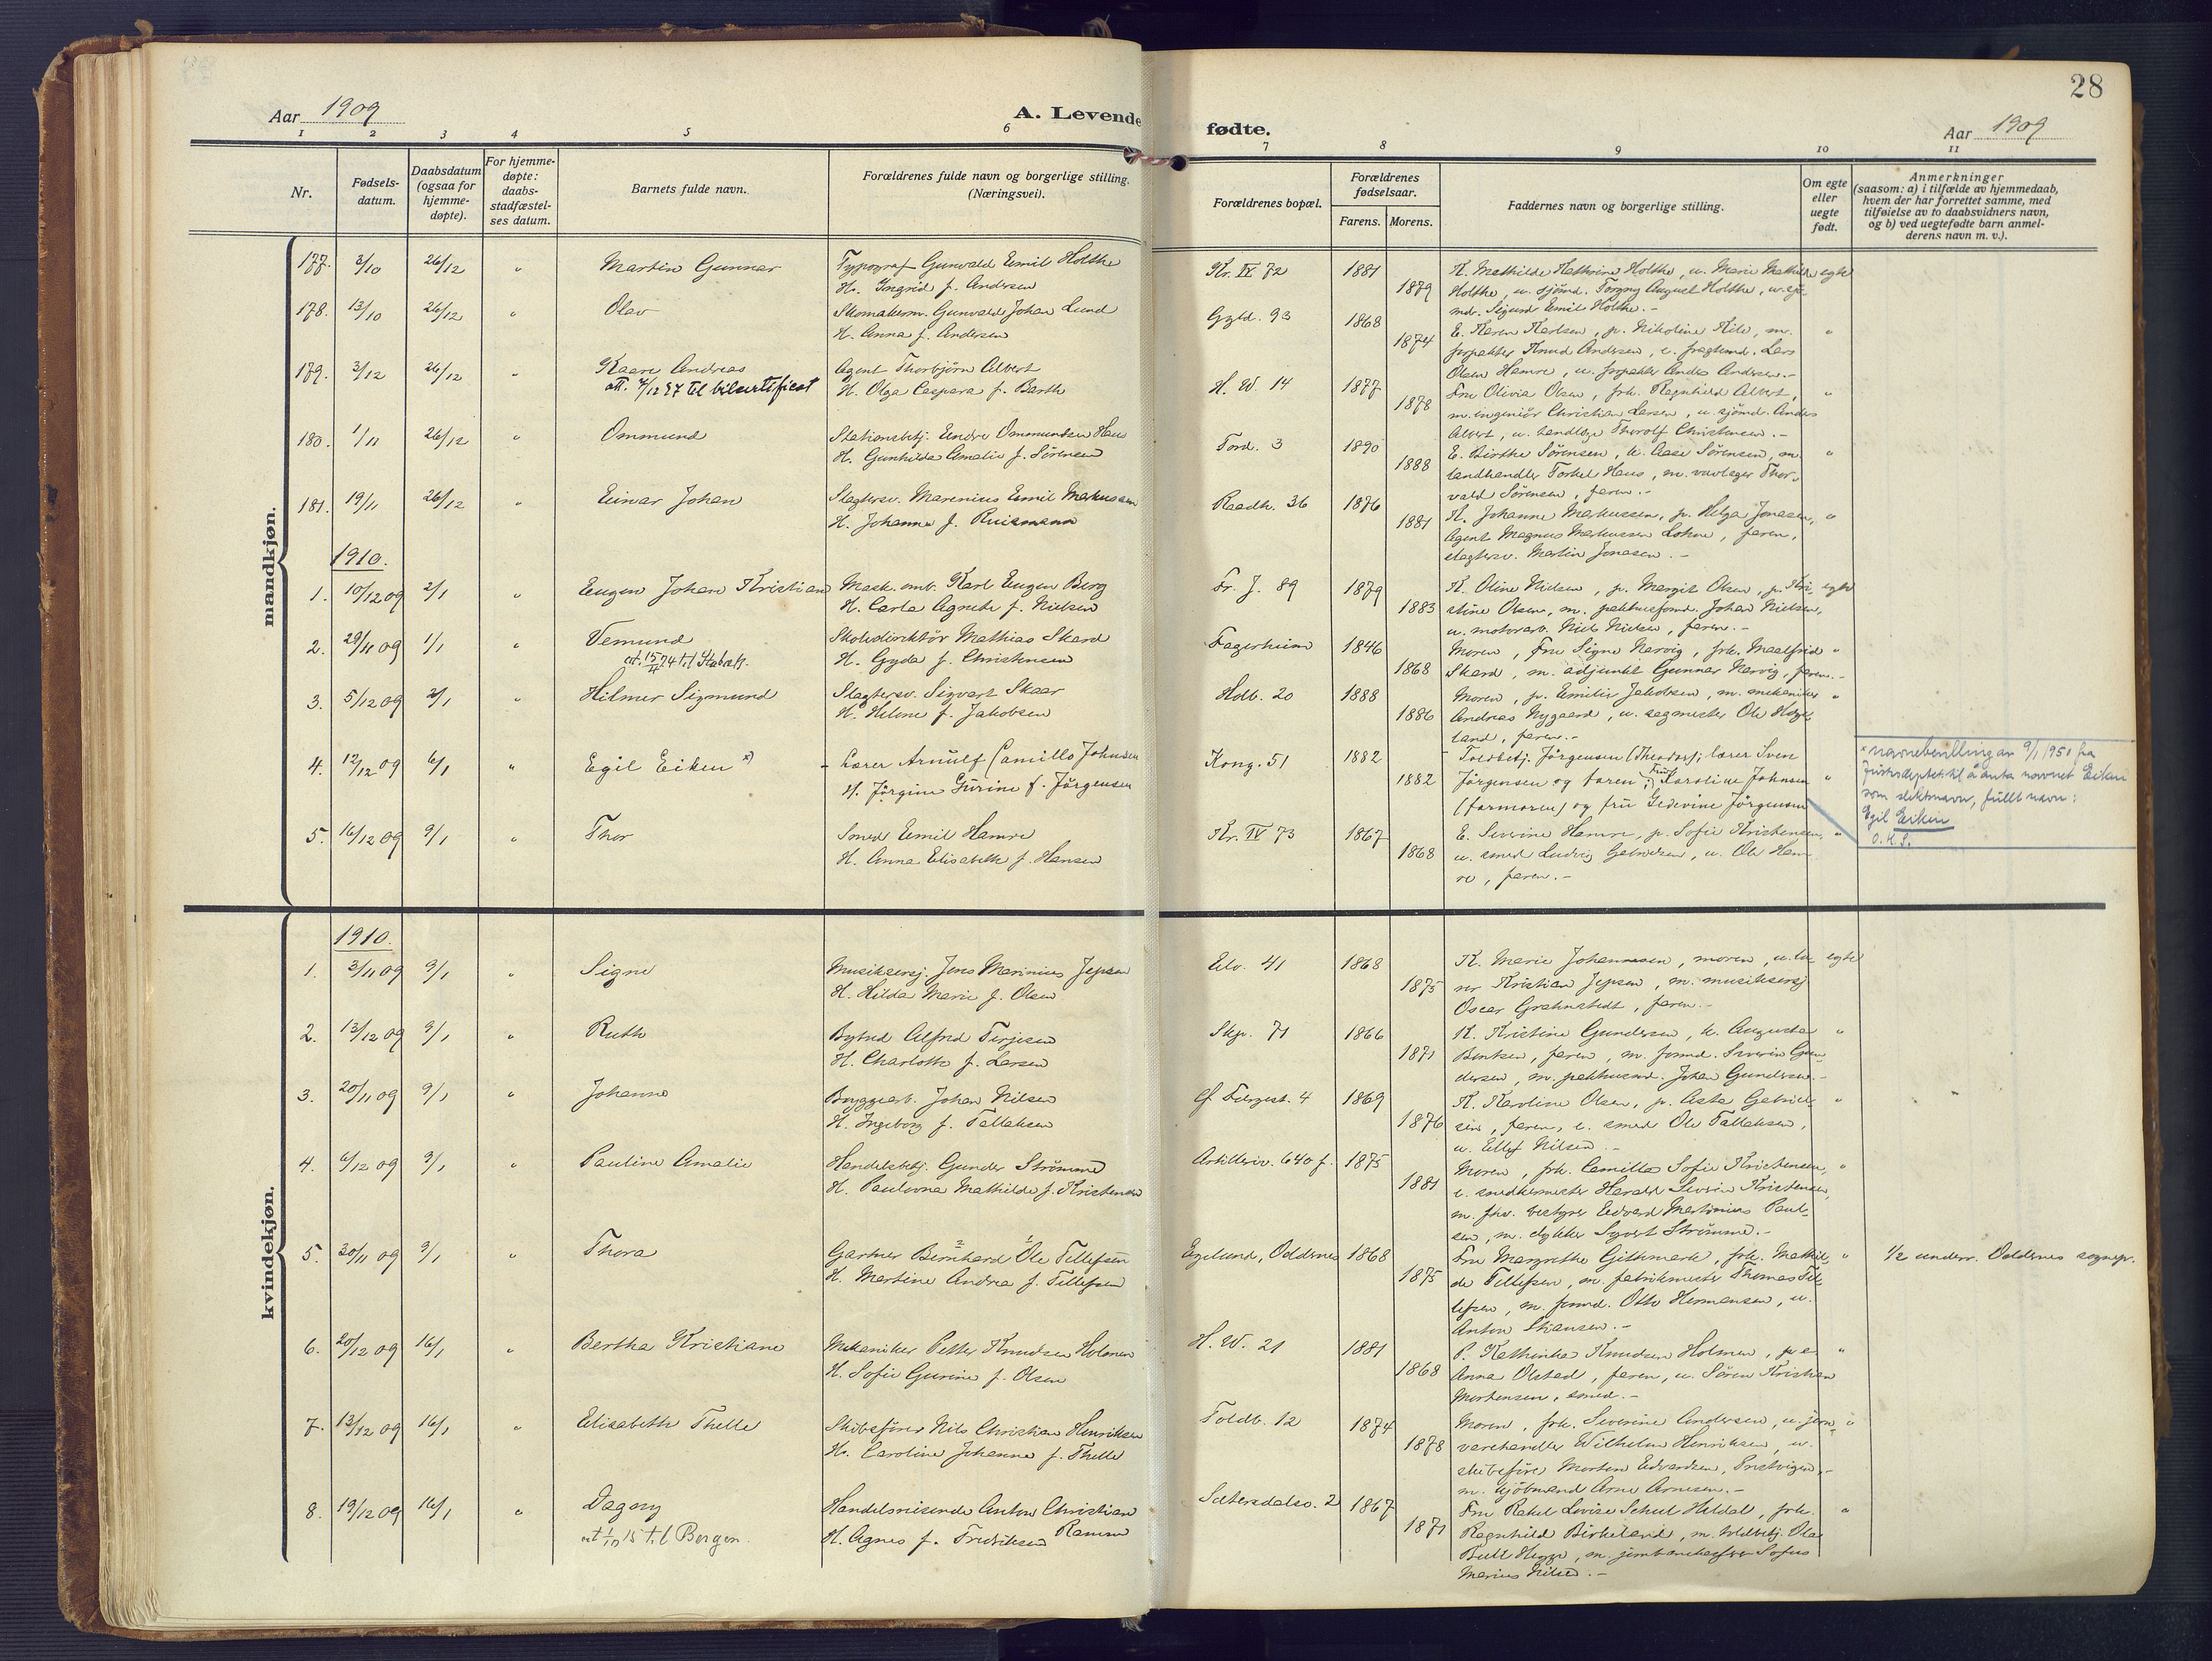 28
Aar 1909
A. Levende fødte.
Aar 1909
1 2 3 4 5 6 7 8 9 10 11
Nr.
Fødsels-
datum.
Daabsdatum
(ogsaa for
hjemme-
døpte).
For hjemme-
døpte:
daabs-
stadfæstel-
ses datum.
Barnets fulde navn.
Forældrenes fulde navn og borgerlige stilling.
(Næringsvei).
Forældrenes bopæl.
Forældrenes
fødselsaar.
Farens. Morens.
Faddernes navn og borgerlige stilling.
Om egte
eller
uegte
født.
Anmerkninger
(saasom: a) i tilfælde av hjemmedaab,
hvem der har forrettet samme, med
tilføielse av to daabsvidners navn,
og b) ved uegtefødte barn anmel-
derens navn m. v.).
mandkjøn.
177. 3/10 26/12 " Martin Gunnar
Typograf Gunvald Emil Holthe
H. Ingrid f. Andersen
Kr. IV 72 1881 1879
K. Mathilde Kathrine Holthe, u. Marie Mathilde egte
Holthe, u. sjömd. Torgny August Holthe, u. sjö
md. Sigurd Emil Holthe.-
178. 13/10 26/12 " Olav
Skomakerm. Gunvald Johan Lund
H. Anna f. Andersen
Gyld. 93 1868 1874
E. Karen Karlsen, p. Nikoline Kile, m. "
forpakter Knud Andersen, e. fragtemd. Lars
Olsen Hamre, u. forpakter Anders Andersen.-
179. 3/12 26/12 " Kaare Andreas
att. 7/12 37 til bilcertificat
Agent Thorbjörn Albert
H. Olga Caspara f. Barth
H. W. 14 1877 1878
Fru Olivia Olsen, frk. Ragnhild Albert, "
m. ingeniör Christian Larsen, u. sjömd. Anders
Albert, u. handlsge Thorolf Christensen.-
180. 1/11 26/12 " Ommund
Stationsbtj. Endre Ommundsen Haus
H. Gunhilda Amalie f. Sörensen
Tord. 3 1890 1888
E. Birthe Sörensen, k. Aase Sörensen, m. "
landhandler Torkel Haus, m. Thor-
vald Sörensen, faren.-
181. 19/11 26/12 " Einar Johan
Slagtersv. Marenius Emil Markussen
H. Johanne f. Ruismann
Raadh. 36 1876 1881
K. Johanne Markussen, p. Helga Jonasen, "
Agent Magnus Markussen Lohne, faren,
slagtersv. Martin Jonasen.-
1910.
1. 10/12 09 2/1 " Eugen Johan Kristian
Mask. arb. Karl Eugen Berg
H. Carla Agnethe f. Nielsen
Fr. J. 89 1879 1883
K. Oline Nielsen, p. Margit Olsen, p. Kri- egte
stine Olsen, m. pakhusformd. Johan Nielsen,
u. motorarb. Niels Nielsen, faren.-
2. 29/11 09 1/1 " Vemund
att. 15/11 24 til Stabæk.
Skoledirektör Mathias Skard
H. Gyda f. Christensen
Fagerheim 1846 1868
Moren, Fru Signe Narvig, frk. Maalfrid "
Skard, m. adjunkt Gunnar Narvig, faren.-
3. 5/12 09 2/1 " Hilmer Sigmund
Slagtersv. Sigvart Skaar
H. Helene f. Jakobsen
Holb. 20 1888 1886
Moren, p. Emilie Jakobsen, m. mekaniker "
Andreas Nygaard, u. sagmester Ole Hege-
land, faren.-
4. 12/12 09 6/1 " Egil Eiken x)
Lærer Arnulf Camillo Johnsen
H. Jörgine Gurine f. Jörgensen
Kong. 51 1882 1882
Toldbetj. Jörgensen (Theodor); lærer Sven
Jörgensen og faren; Fru Karoline Johnsen "
(farmoren) og fru Gedevine Jörgensen
x navnebevilling av 9/1 1951 fra
Justisdeptet til å anta navnet Eiken
som slektsnavn, fullt navn:
Egil Eiken
O.K.S.
5. 16/12 09 9/1 " Thor
Smed Emil Hamre
H. Anna Elisabeth f. Hansen
Kr. IV 73 1867 1868
E. Severine Hamre, p. Sofie Kristensen, "
u. smed Ludvig Gabrielsen, u. Ole Ham-
re, faren.-
kvindekjøn.
1910.
1. 3/11 09 9/1 " Signe
Musiksersj. Jens Marinius Jepsen
H. Hilda Marie f. Olsen
Elv. 41 1868 1875
K. Marie Johannesen, moren, u. læ- egte
rer Kristian Jepsen, m. musiksersj
Oscar Grahnstedt, faren.-
2. 13/12 09 9/1 " Ruth
Bybud Alfred Terjesen
H. Charlotte f. Larsen
Skp. 71 1866 1871
K. Kristine Gundersen, k. Augusta "
Bentsen, faren, m. formd. Severin Gun-
dersen, m. pakhusmd. Johan Gundersen.-
3. 20/11 09 9/1 " Johanne
Bryggearb. Johan Nilsen
H. Ingeborg f. Tallaksen
Gl. Færgest. 4 1869 1876
K. Karoline Olsen, p. Asta Gabriel- "
sen, faren, e. smed Ole Tallaksen,
u. Ellef Nilsen.-
4. 6/12 09 9/1 " Pauline Amalie
Handelsbetj. Gunder Strömme
H. Paulovna Mathilde f. Kristensen
Artilleriv. 640 f. 1875 1881
Moren, frk. Camilla Sofie Kristensen, "
e. snedkermester Harald Severin Kristensen,
m. fhv. bestyrer Edvard Martinius Paul-
sen, m. dykker Syvert Strömme.-
5. 30/11 09 9/1 " Thora
Gartner Bernhard 2 Ole 1 Tellefsen
H. Martine Andrea f. Tellefsen
Egelund, Oddernes 1868 1875
Fru Margrethe Githmark, frk. Mathil- "
de Tellefsen, m. fabrikmester Thomas Tel-
lefsen, m. formd. Otto Hermansen, u.
Anton Stiansen.-
1/2 underr. Oddernes sognepr.
6. 20/12 09 16/1 " Bertha Kristiane
Mekaniker Petter Knudsen Holmen
H. Sofie Gurine f. Olsen
H. W. 21 1881 1868
P. Kathinka Knudsen Holmen, p e "
Anna Olstad, faren, u. Sören Kristian
Mortensen, smed.-
7. 13/12 09 16/1 " Elisabeth Thelle
Skibsförer Nils Christian Henriksen
H. Caroline Johanne f. Thelle
Toldb. 12 1874 1878
Moren, frk. Severine Andersen, u. jern- "
varehandler Wilhelm Henriksen, u.
skibsförer Morten Edvardsen, Prestvigen,-
m. kjöbmand Arne Arnesen.-
8. 19/12 09 16/1 " Dagny
att 1/10 15 til Bergen.
Handelsreisende Anton Christian
Ramm
H. Agnes f. Fredriksen
Sætersdalsv. 2 1867 1871
Fru Rakel Lovise Scheel Heldal, frk. "
Ragnhild Birkeland, m. toldbetj. Ola
Bull Hegge, m. Sofus
Marius Nilsen.-